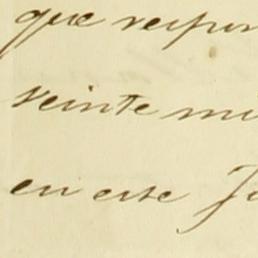 que respon
veinte mi
en ese Ju